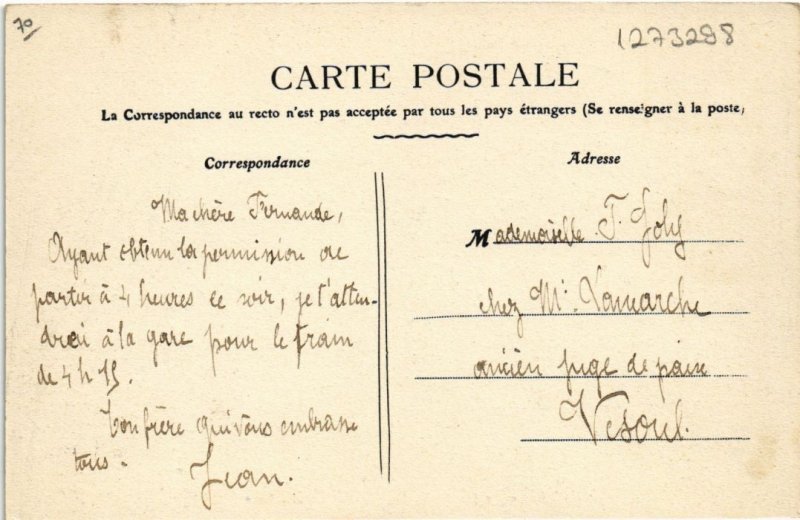 70
1273298
CARTE POSTALE
La Correspondance au recto n'est pas acceptée par tous les pays étrangers (Se renseigner à la poste)
Correspondance
Ma chère Fernande,
Ayant obtenu la permission de
partir à 4 heures ce soir, je t'atten-
drai à la gare pour le train
de 4 h 15.
Ton frère qui vous embrasse
tous.
Jean.
Adresse
Mademoiselle F. Joly
chez Mr. Lamarche
ancien juge de paix
Vesoul.